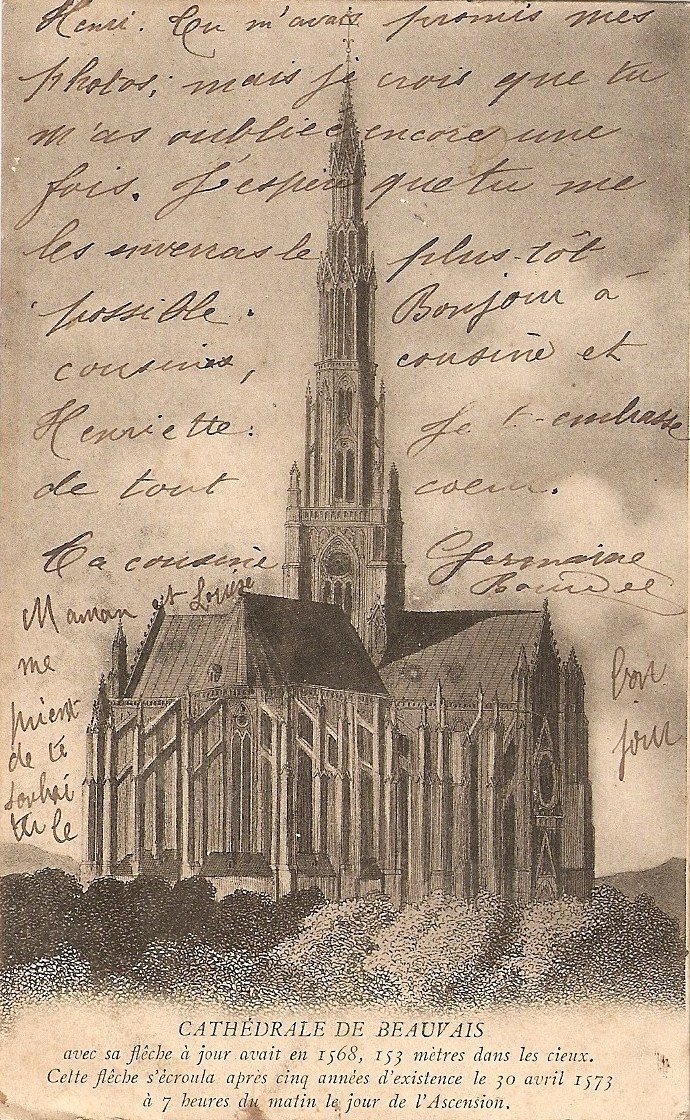 Henri. Tu m'avais promis mes
photos; mais je crois que tu
m'as oubliée encore une
fois. J'espère que tu me
les enverras le plus-tôt
possible. Bonjour à
cousines, cousine et
Henriette. Je t'embrasse
de tout coeur.
Ta cousine Germaine
Maman et Louise
me
prient
de te
souhai
ter le
bon
jour
CATHÉDRALE DE BEAUVAIS
avec sa flêche à jour avait en 1568, 153 mètres dans les cieux.
Cette flêche s'écroula après cinq années d'existence le 30 avril 1573
à 7 heures du matin le jour de l'Ascension.